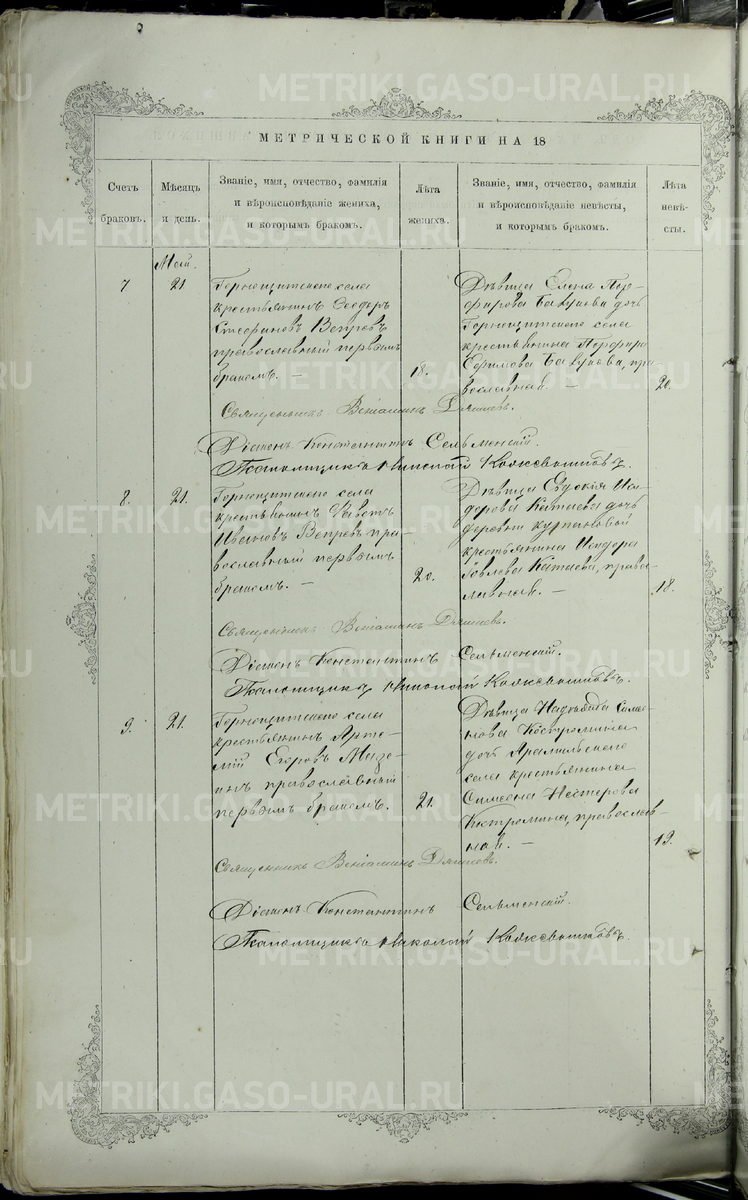 МЕТРИЧЕСКОЙ КНИГИ НА 18
Счетъ браковъ.
Мѣсяцъ и день.
Званіе, имя, отчество, фамилія
и вѣроисповѣданіе жениха,
и которымъ бракомъ.
Лѣта жениха.
Званіе, имя, отчество, фамилія
и вѣроисповѣданіе невѣсты,
и которымъ бракомъ.
Лѣта невѣ-
сты.
Май.
7
21
Горнощитскаго села
крестьянинъ Ѳеодоръ
Стефановъ Вепревъ
православный первымъ
бракомъ. —
18.
Дѣвица Елена Пор-
фирова дочь
Горнощитскаго села
крестьянина Порфира
Ефимова пра-
вославная. —
20.
Священникъ Веніаминъ
Діаконъ Константинъ Сельменскій.
Николай
8.
21.
Горнощитскаго села
крестьянинъ Савва
Ивановъ Вепревъ пра-
вославный первымъ
бракомъ. —
20.
Дѣвица Евдокія Иси-
дорова Катаева дочь
деревни Кургановой
крестьянина Исидора
Іовлева Катаева, право-
славная. —
18.
Священникъ Веніаминъ
Діаконъ Константинъ Сельменскій.
Николай
9.
21.
Горнощитскаго села
крестьянинъ Арте-
мій Егоровъ
православный
первымъ бракомъ.
21.
Дѣвица Надежда Симе-
онова Костромина
дочь Арамильскаго
села крестьянина
Симеона Нестерова
Костромина, православ-
ная. —
19.
Священникъ Веніаминъ
Діаконъ Константинъ Сельменскій
Николай
METRIKI.GASO-URAL.RU